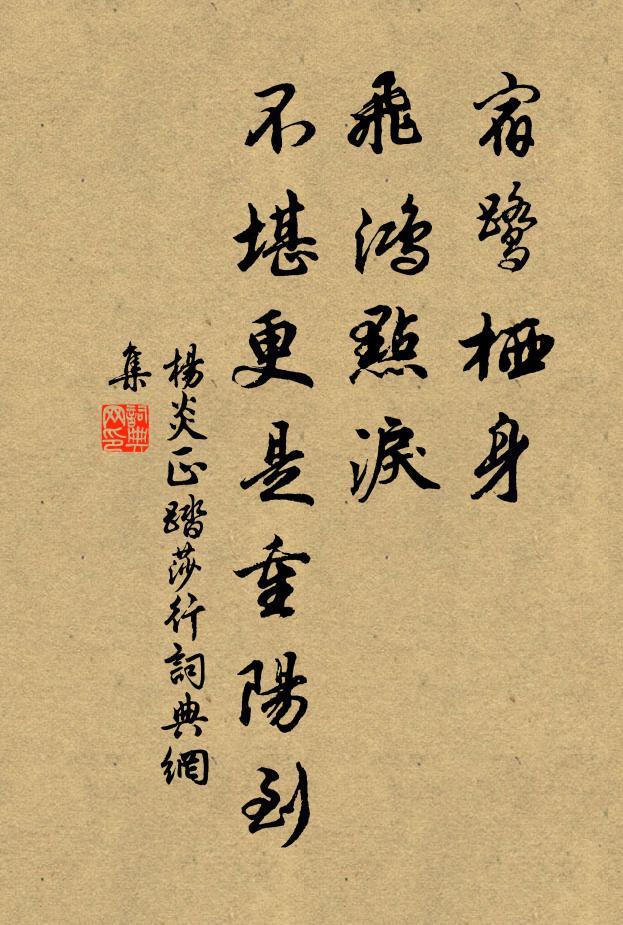 宿鷺栖身
飛鴻點淚
不堪更是重陽到
楊炎正踏莎行詞典網
集
詞典
网印